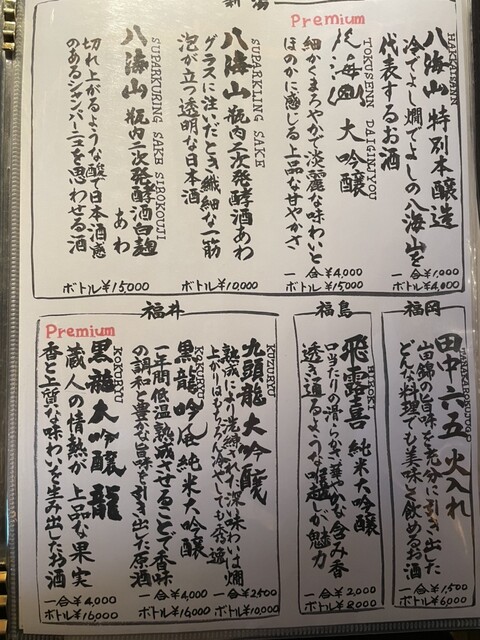 新潟
HAKKAISANN
八海山 特別本醸造
冷でよし燗でよしの八海山を
代表するお酒
一合¥1,000
ボトル¥4,000
Premium
八海山 大吟醸
TOKUSENN DAIGINJYOU
細かくまろやかで淡麗な味わいと
ほのかに感じる上品な甘やかさ
一合¥4,000
ボトル¥15,000
SUPARKLING SAKE
八海山 瓶内二次発酵酒あわ
グラスに注いだとき繊細な一筋
泡が立つ透明な日本酒
ボトル¥10,000
SUPARKURING SAKE SIROKOUJI
八海山 瓶内二次発酵酒白麹
あわ
切れ上がるような酸で日本酒感
のあるシャンパーニュを思わせる酒
ボトル¥15,000
福岡
田中六五 火入れ
山田錦の旨味を充分に引き出した
どんな料理でも美味く飲めるお酒
一合¥1,500
ボトル¥6,000
福島
HIROKI
飛露喜 純米大吟醸
口当たりの滑らかさ華やかな含み香
透き通るような喉越しが魅力
一合¥2,000
ボトル¥8,000
福井
KUZURYU
九頭龍 大吟醸
熟成により洗練された深い味わいは燗
上がりはもちろん冷やしても秀逸
一合¥2500
ボトル¥10,000
KOKURYU
黒龍 吟風 純米大吟醸
一年間低温熟成させることで香味
の調和と豊かな旨味を引き出した原酒
一合¥4,000
ボトル¥16,000
Premium
KOKURYU
黒龍大吟醸 龍
蔵人の情熱が上品な果実
香と上質な味わいを生み出したお酒
一合¥4,000
ボトル¥16,000